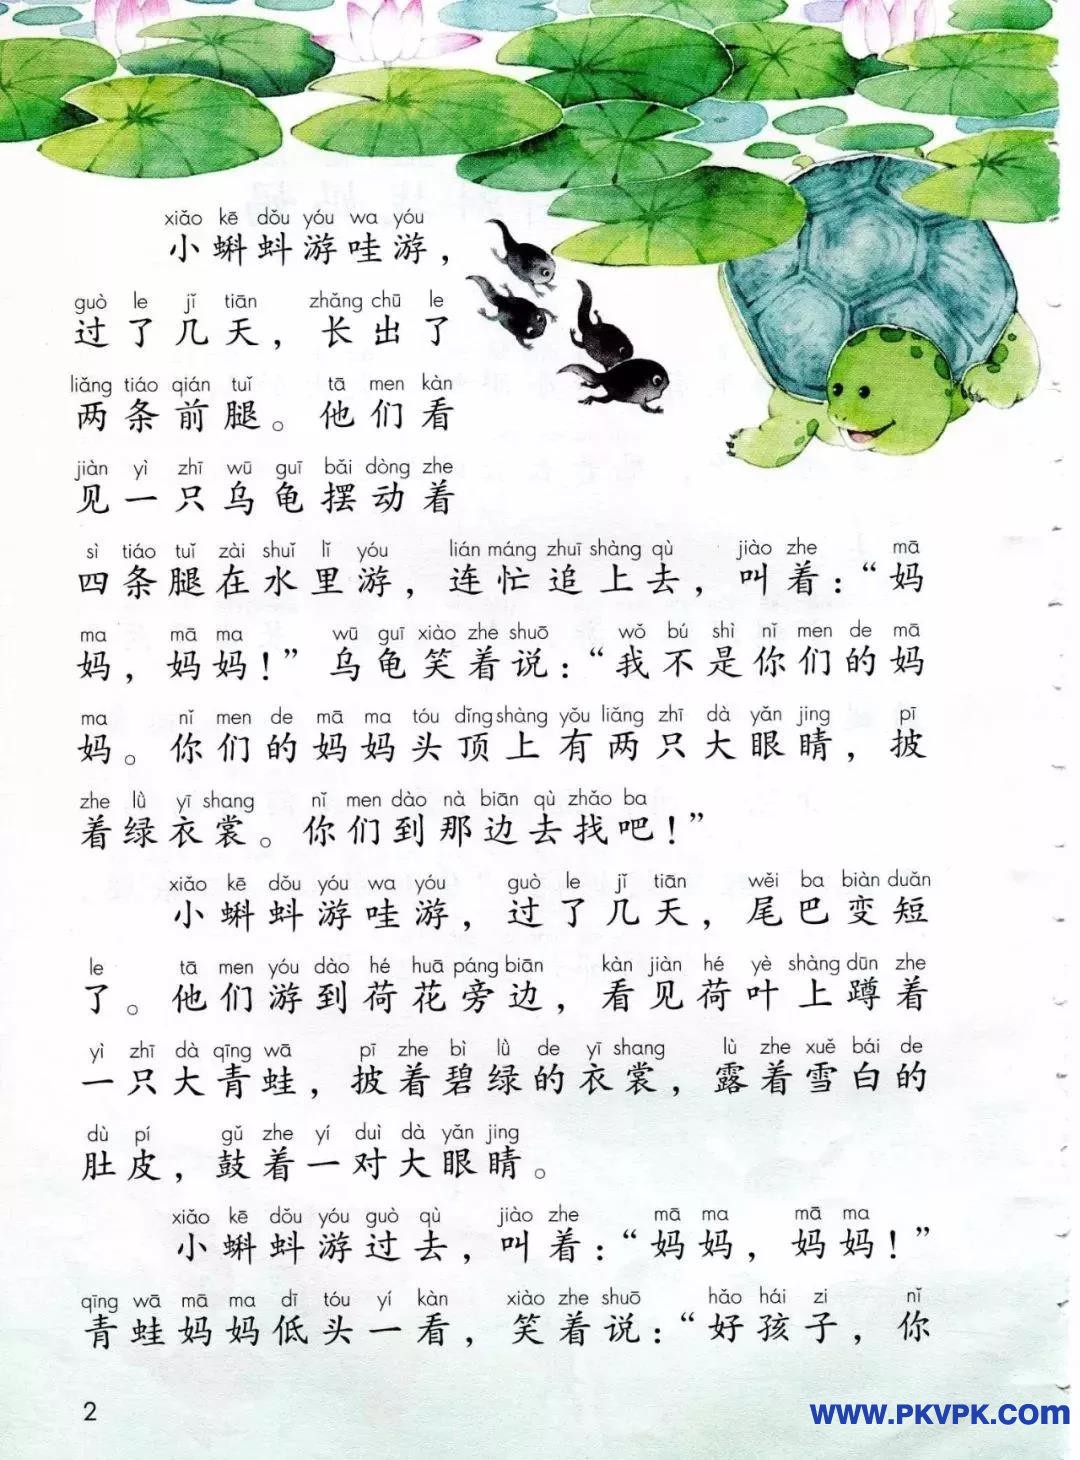 xiǎo kē dǒu yóu wa yóu
小蝌蚪游哇游，
guò le jǐ tiān zhǎng chū le
过了几天，长出了
liǎng tiáo qián tuǐ tā men kàn
两条前腿。他们看
jiàn yì zhī wū guī bǎi dòng zhe
见一只乌龟摆动着
sì tiáo tuǐ zài shuǐ lǐ yóu lián máng zhuī shàng qù jiào zhe mā
四条腿在水里游，连忙追上去，叫着：“妈
ma mā ma wū guī xiào zhe shuō wǒ bú shì nǐ men de mā
妈，妈妈！”乌龟笑着说：“我不是你们的妈
ma nǐ men de mā ma tóu dǐng shàng yǒu liǎng zhī dà yǎn jing pī
妈。你们的妈妈头顶上有两只大眼睛，披
zhe lǜ yī shang nǐ men dào nà biān qù zhǎo ba
着绿衣裳。你们到那边去找吧！”
xiǎo kē dǒu yóu wa yóu guò le jǐ tiān wěi ba biàn duǎn
小蝌蚪游哇游，过了几天，尾巴变短
le tā men yóu dào hé huā páng biān kàn jiàn hé yè shàng dūn zhe
了。他们游到荷花旁边，看见荷叶上蹲着
yì zhī dà qīng wā pī zhe bì lǜ de yī shang lù zhe xuě bái de
一只大青蛙，披着碧绿的衣裳，露着雪白的
dù pí gǔ zhe yí duì dà yǎn jing
肚皮，鼓着一对大眼睛。
xiǎo kē dǒu yóu guò qù jiào zhe mā ma mā ma
小蝌蚪游过去，叫着：“妈妈，妈妈！”
qīng wā mā ma dī tóu yí kàn xiào zhe shuō hǎo hái zi nǐ
青蛙妈妈低头一看，笑着说：“好孩子，你
2
www.PKVPK.com